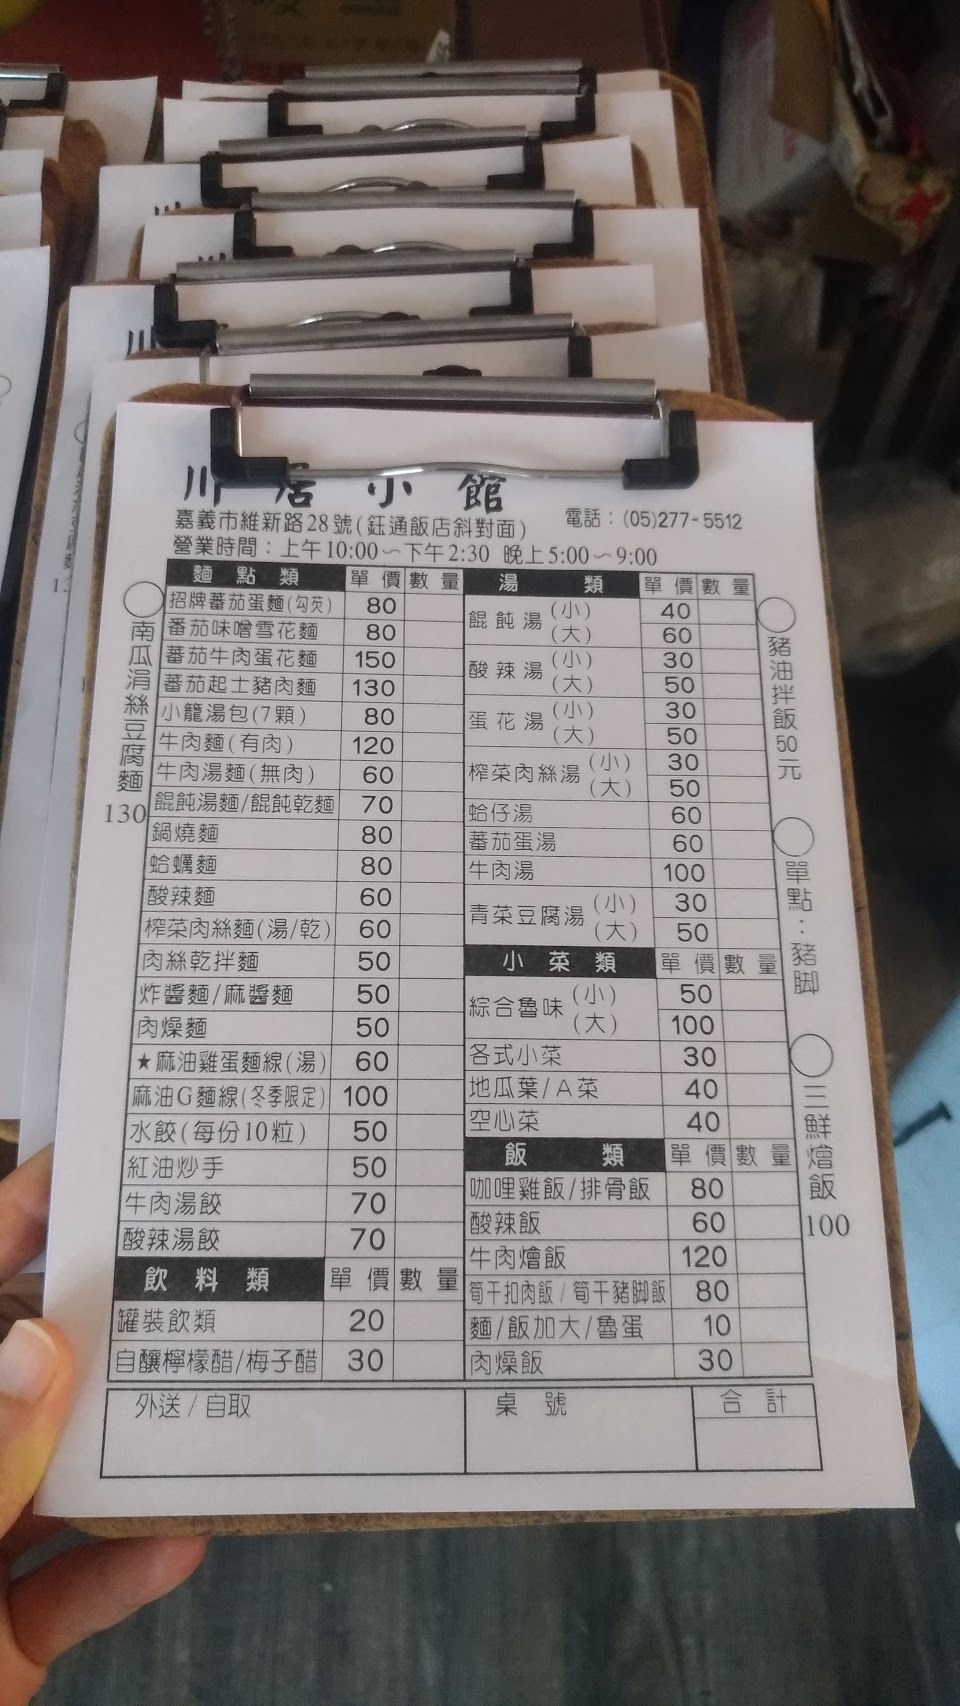 川居小館
嘉義市維新路28號(鈺通飯店斜對面)
電話：(05)277-5512
營業時間：上午10:00～下午2:30 晚上5:00～9:00
麵點類 單價 數量
招牌蕃茄蛋麵(勾芡) 80
蕃茄味噌雪花麵 80
蕃茄牛肉蛋花麵 150
蕃茄起士豬肉麵 130
小籠湯包(7顆) 80
牛肉麵(有肉) 120
牛肉湯麵(無肉) 60
餛飩湯麵/餛飩乾麵 70
鍋燒麵 80
蛤蠣麵 80
酸辣麵 60
榨菜肉絲麵(湯/乾) 60
肉絲乾拌麵 50
炸醬麵/麻醬麵 50
肉燥麵 50
★麻油雞蛋麵線(湯) 60
麻油G麵線(冬季限定) 100
水餃(每份10粒) 50
紅油炒手 50
牛肉湯餃 70
酸辣湯餃 70
飲料類 單價 數量
罐裝飲類 20
自釀檸檬醋/梅子醋 30
湯類 單價 數量
餛飩湯 (小) 40
(大) 60
酸辣湯 (小) 30
(大) 50
蛋花湯 (小) 30
(大) 50
榨菜肉絲湯 (小) 30
(大) 50
蛤仔湯 60
蕃茄蛋湯 60
牛肉湯 100
青菜豆腐湯 (小) 30
(大) 50
小菜類 單價 數量
綜合魯味 (小) 50
(大) 100
各式小菜 30
地瓜葉/A菜 40
空心菜 40
飯類 單價 數量
咖哩雞飯/排骨飯 80
酸辣飯 60
牛肉燴飯 120
筍干扣肉飯/筍干豬腳飯 80
麵/飯加大/魯蛋 10
肉燥飯 30
南瓜涓絲豆腐麵130
豬油拌飯50元
單點：豬腳
三鮮燴飯100
外送/自取
桌號
合計